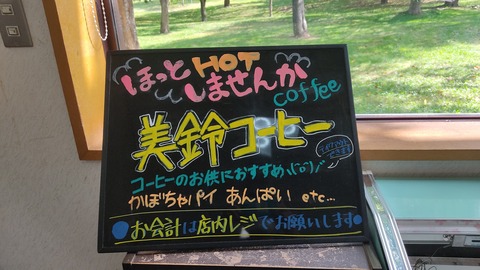 ほっと HOT
しませんか
coffee
美鈴コーヒー
コーヒーのお供におすすめ
かぼちゃパイ あんぱい etc...
お会計は店内レジでお願いします